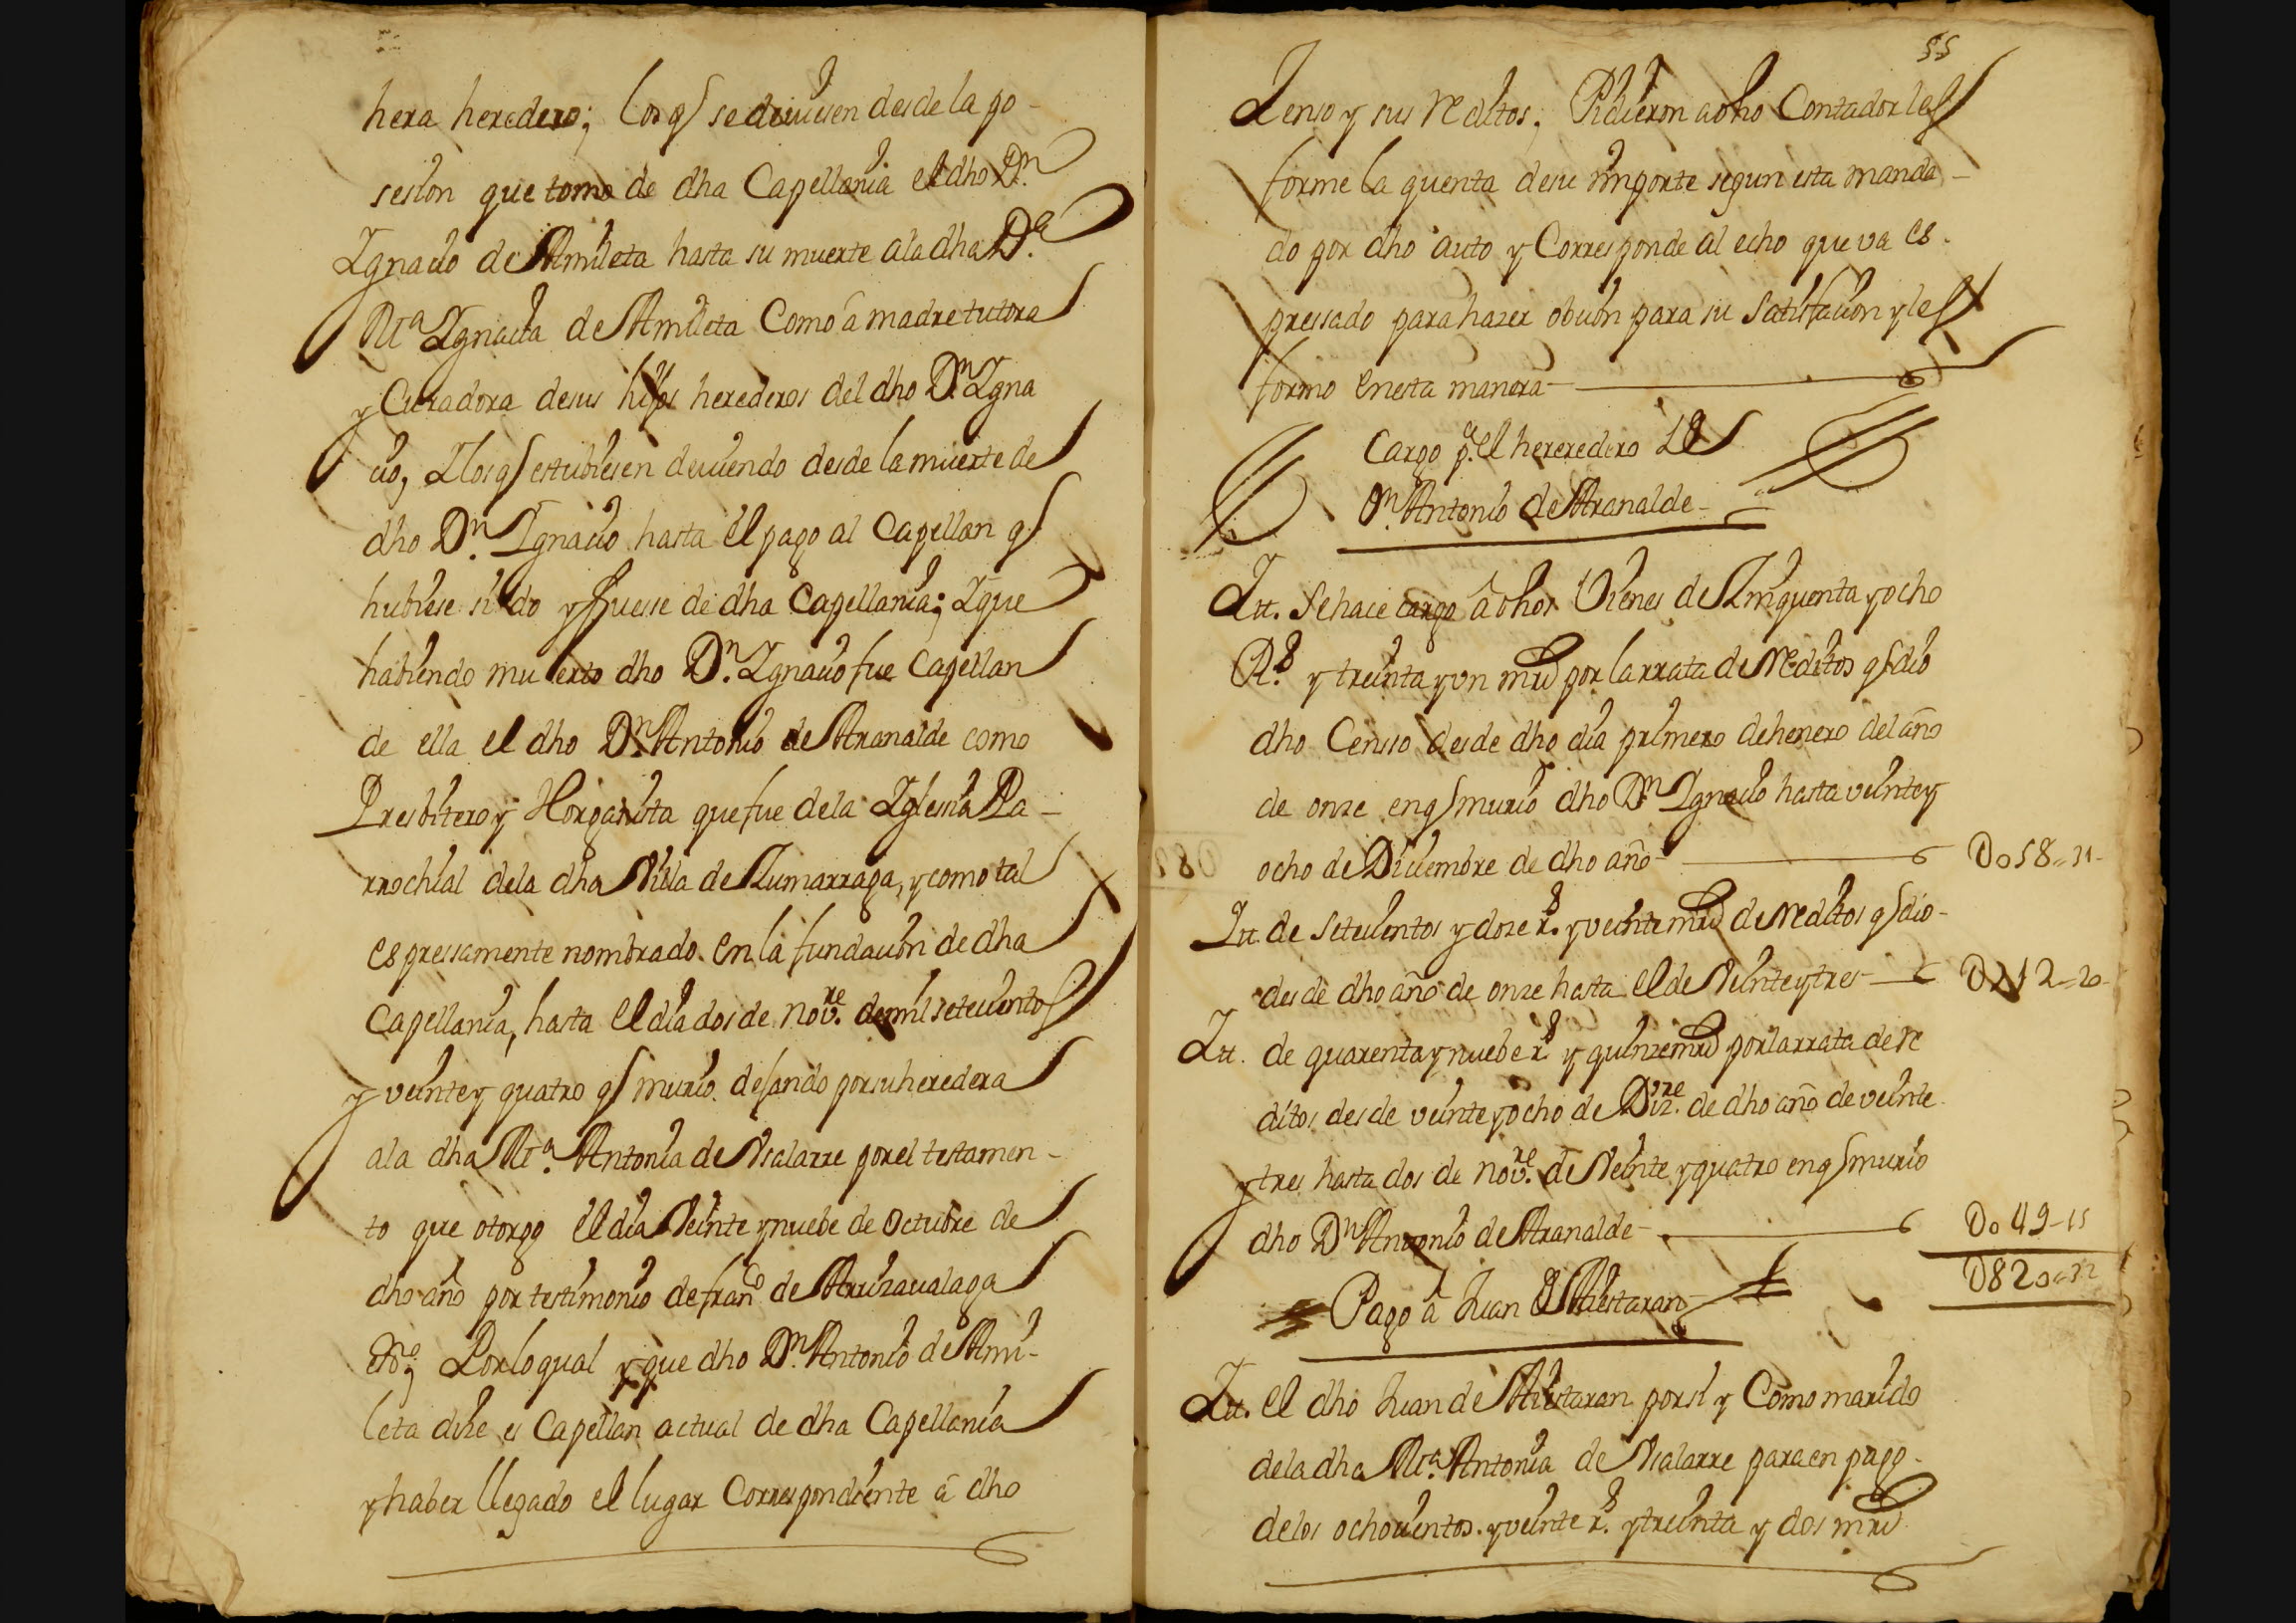 hera heredero; los q̄ se deuiesen desde la po-
sesion que tomo de dha Capellania el dho Dn.
Ygnacio de Amileta hasta su muerte a la dha Da.
Ma. Ygnacia de Amileta Como â madre tutora
y Curadora de sus hijos herederos del dho Dn. Ygna
cio, Y los q̄ estubiesen deuiendo desde la muerte de
dho Dn. Ygnacio hasta el pago al Capellan q̄
hubiese sido y fuesse de dha Capellania; Y que
habiendo muerto dho Dn. Ygnacio fue Capellan
de ella el dho Dn. Antonio de Aranalde como
Presbitero y Horganista que fue de la Yglesia Pa-
rrochial de la dha Villa de Zumarraga, y como tal
espressamente nombrado en la fundacion de dha
Capellania, hasta el dia dos de Novre. de mil setecientos
y veinte y quatro q̄ murio dejando por su heredera
a la dha Ma. Antonia de Vsalarre por el testamen-
to que otorgo el dia Veinte y nuebe de Octubre de
dho año por testimonio de Franco de Arrizaualaga
esno; Por lo qual y que dho Dn. Antonio de Ami-
leta dize es Capellan actual de dha Capellania
y haber llegado el lugar Correspondiente â dho
55
Zenso y sus reditos; Pidieron a dho Contador les
forme la quenta de su importe segun esta manda-
do por dho auto y Corresponde al echo que va es-
pressado para hazer obcion para su Satisfacion y les
formo en esta manera
Cargo pa. el hereredero de
Dn. Antonio de Aranalde
Ytt. Se hace cargo â dhos Vienes de Zinquenta y ocho
Rs. y treinta y vn mrs por la rrata de Reditos q̄ dio
dho Censso desde dho dia primero de henero del año
de onze en q̄ murio dho Dn. Ygnacio hasta veinte y
ocho de Diciembre de dho año
Do58-31-
Ytt. de setecientos y doze rs. y veinte mrs de Reditos q̄ dio-
desde dho año de onze hasta el de Veinte y tres
D712-20-
Ytt. de quarenta y nuebe rs y quinze mrs por la rrata de re
ditos desde veinte y ocho de Dizre. de dho año de veinte
y tres hasta dos de Novre. de Veinte y quatro en q̄ murio
dho Dn. Antonio de Aranalde
Do49-15
D820-32
Pago â Juan de Aristaran
Ytt. el dho Juan de Aristaran por si y Como marido
de la dha Ma. Antonia de Vsalarre para en pago
de los ochocientos y veinte rs. y treinta y dos mrs